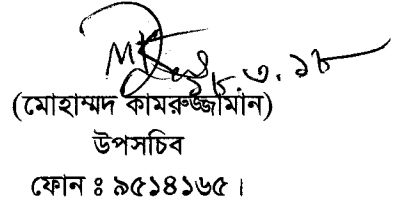 ১৮.৩.১৮
(মোহাম্মদ কামরুজ্জামান)
উপসচিব
ফোন ঃ ৯৫১৪১৬৫।